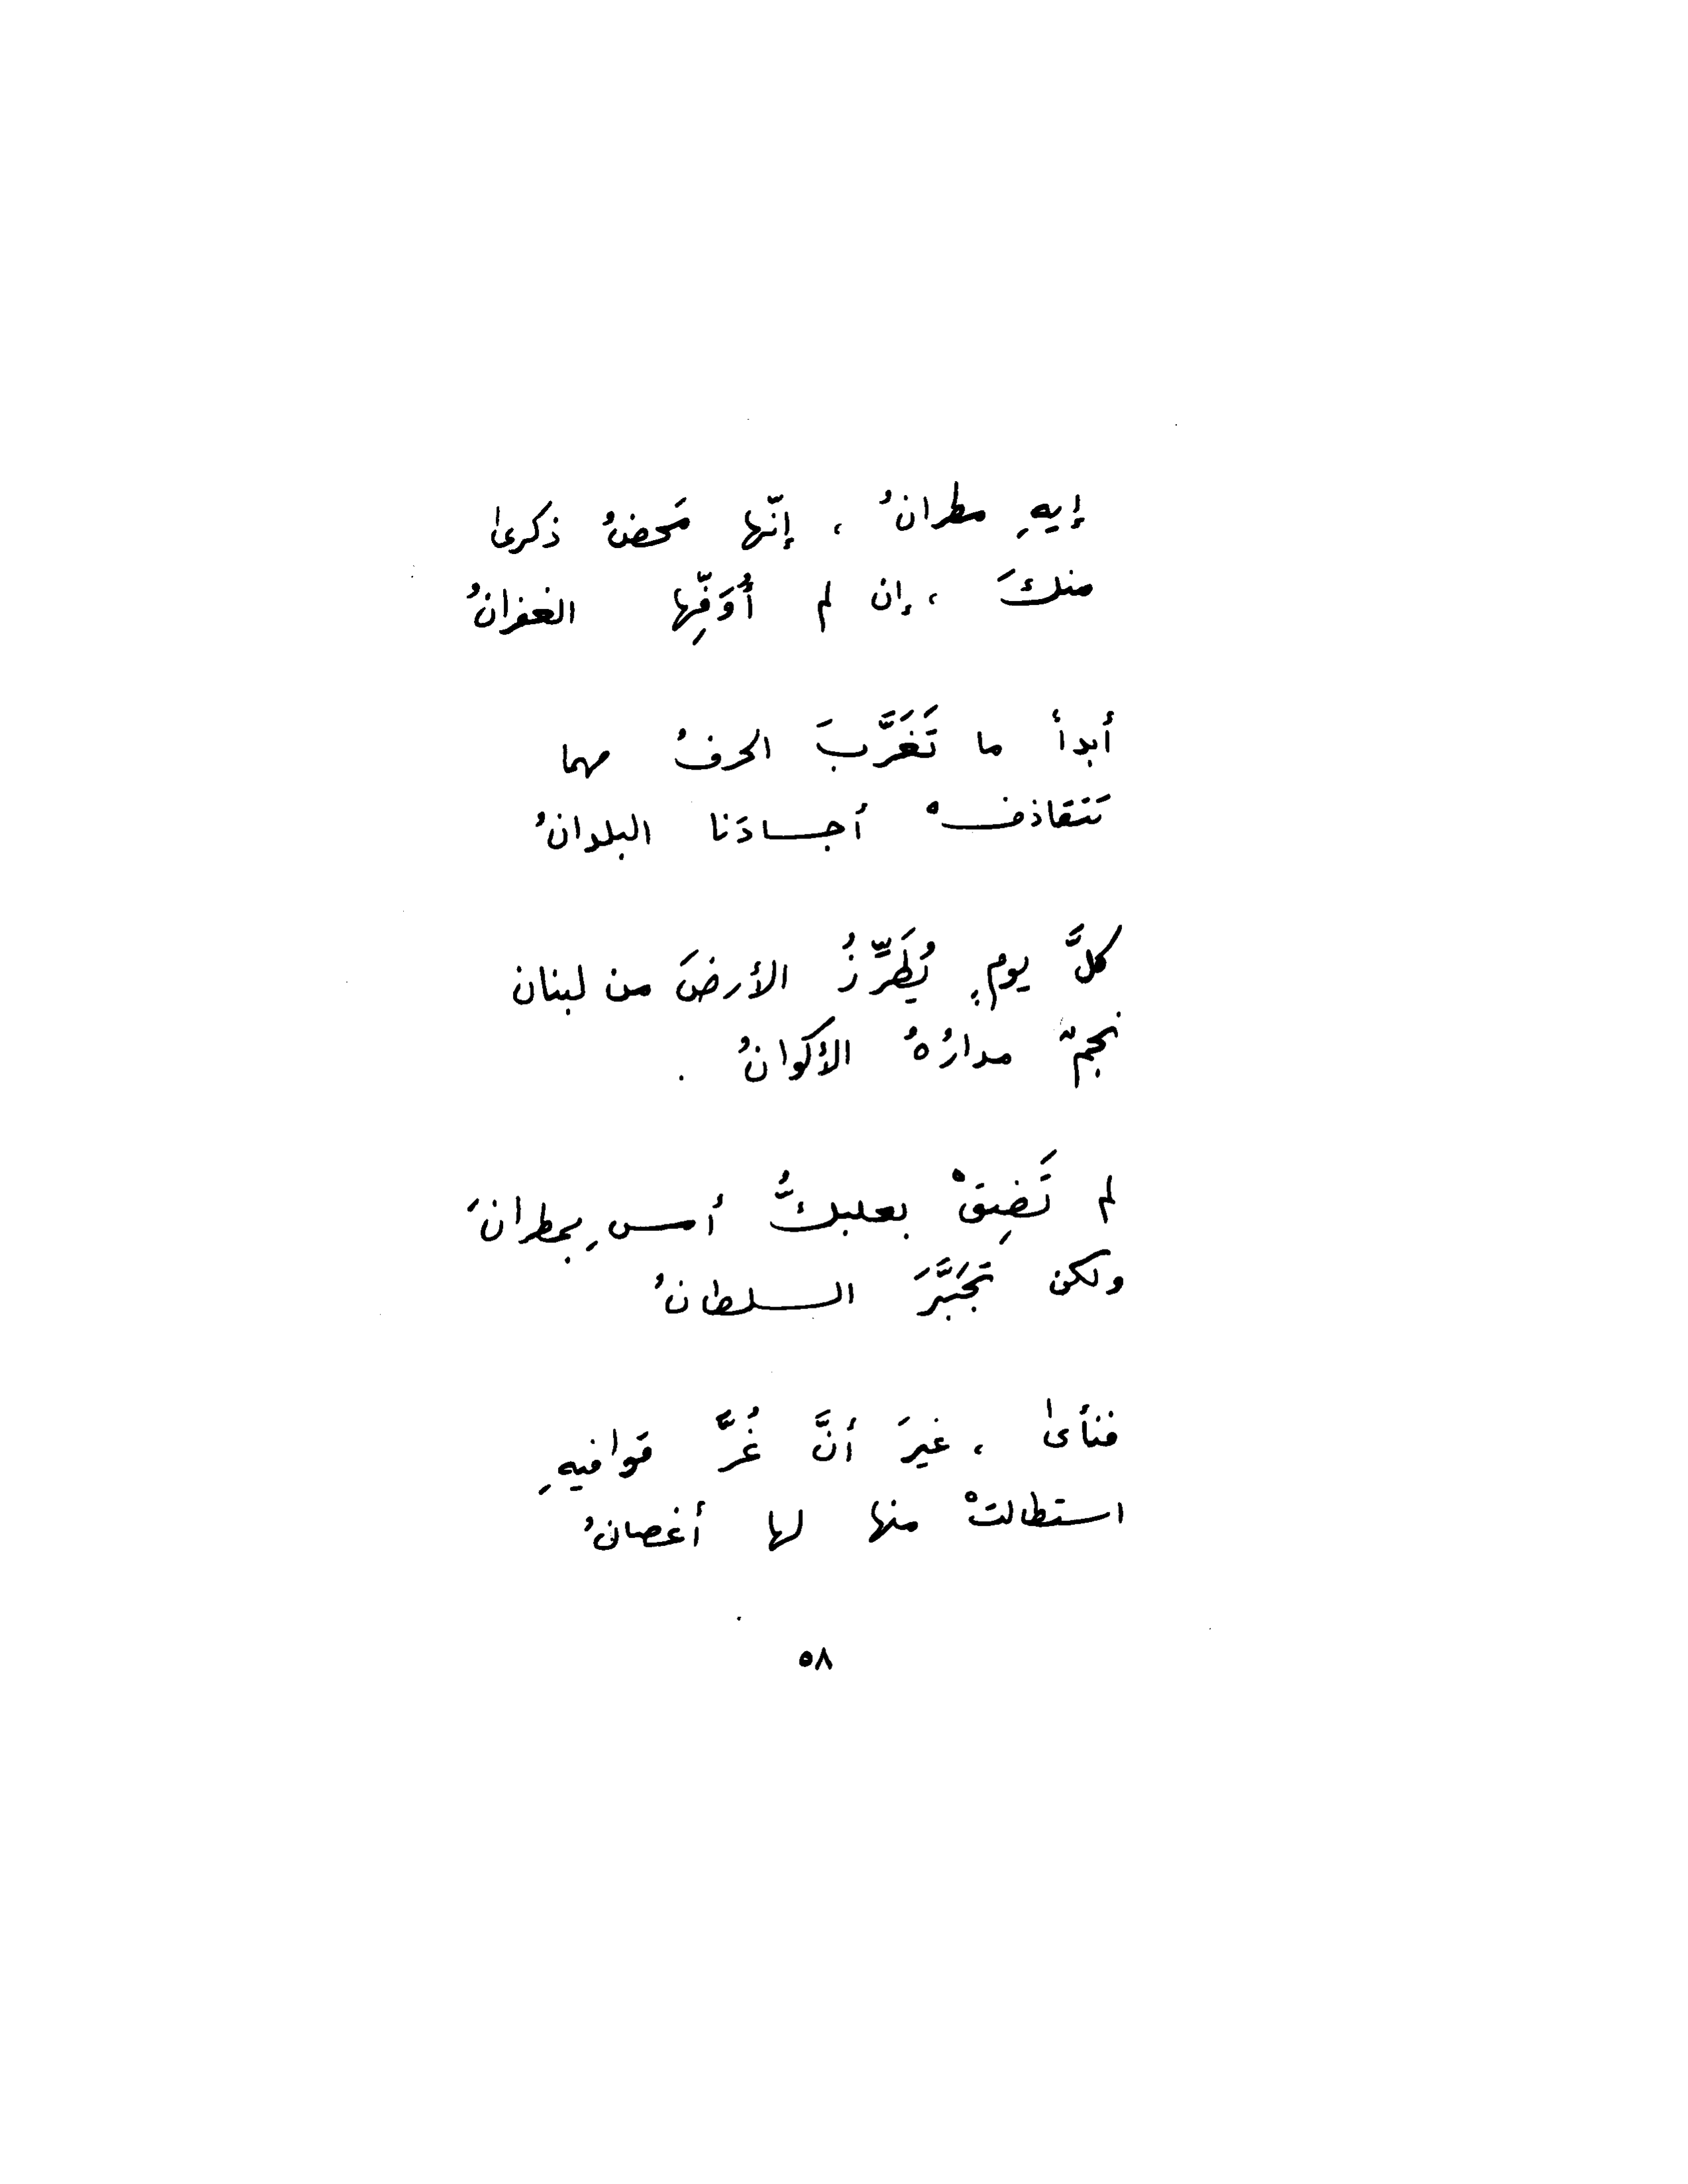 إيهِ مطرانُ ، إنّها مَحضُ ذكرىٰ
منكَ ، إن لم أُوَفِّها الغفرانُ
أبداً ما تَغَرَّبَ الحرفُ مهما
تَتقاذفْ أجسادَنا البلدانُ
كلَّ يومٍ يُطَرِّزُ الأرضَ من لبنان
نجمٌ مدارُهُ الأكوانُ .
لم تَضِقْ بعلبكُّ أمسِ بمطرانَ
ولكن تَجَبَّرَ السلطانُ
فنأىٰ ، غيرَ أنَّ غُرَّ قوافيهِ
استطالتْ منها لها أغصانُ
٥٨